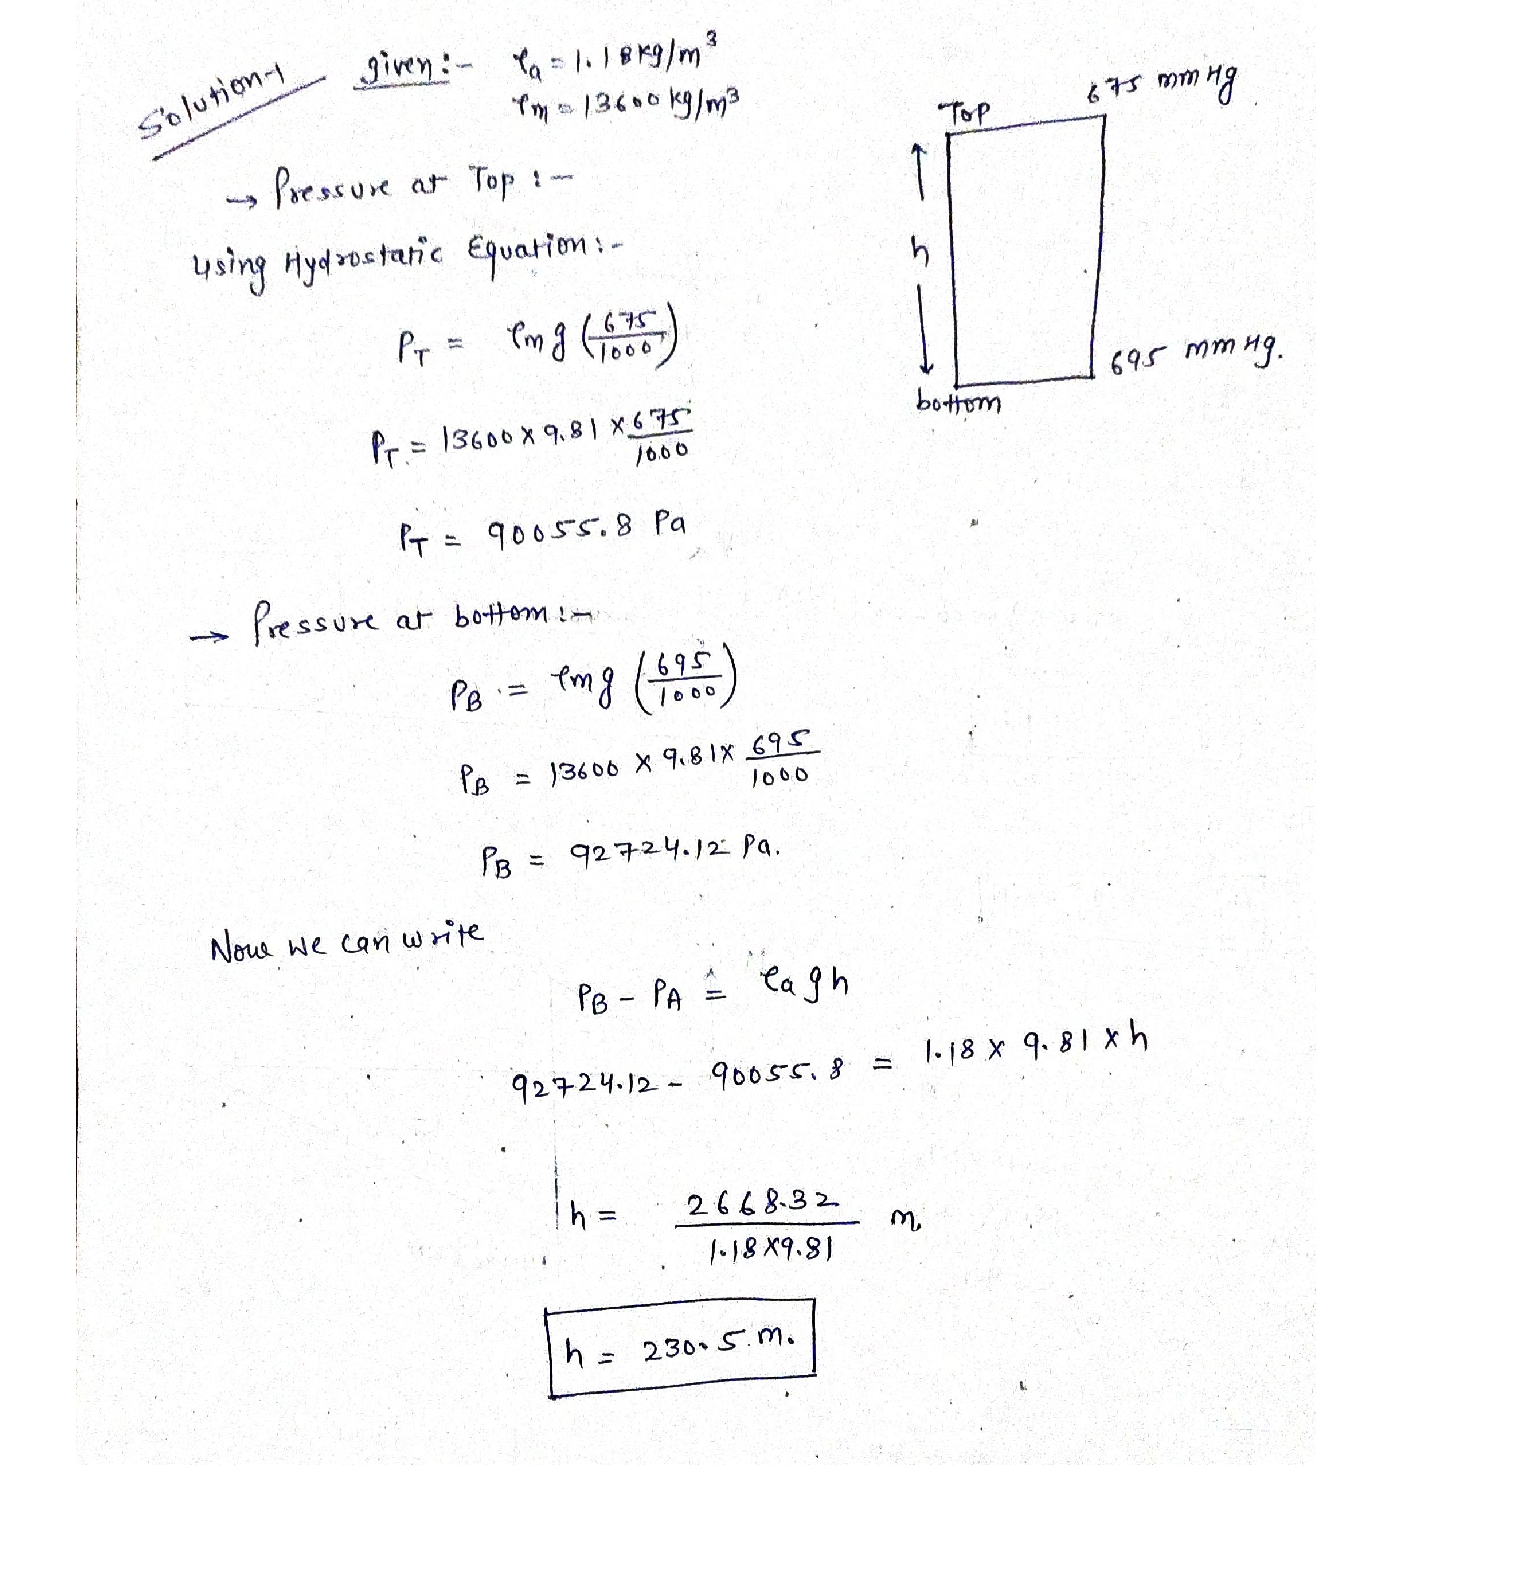 Solution-1
given :- ρa = 1.18 kg/m³
ρm = 13600 kg/m³
Top
675 mmHg.
h
bottom
695 mmHg.
→ Pressure at Top :-
Using Hydrostatic Equation :-
PT = ρmg (675/1000)
PT = 13600 x 9.81 x 675/1000
PT = 90055.8 Pa
→ Pressure at bottom :-
PB = ρmg (695/1000)
PB = 13600 x 9.81 x 695/1000
PB = 92724.12 Pa.
Now we can write
PB - PA = ρagh
92724.12 - 90055.8 = 1.18 x 9.81 x h
h = 2668.32/1.18x9.81 m
h = 230.5 m.